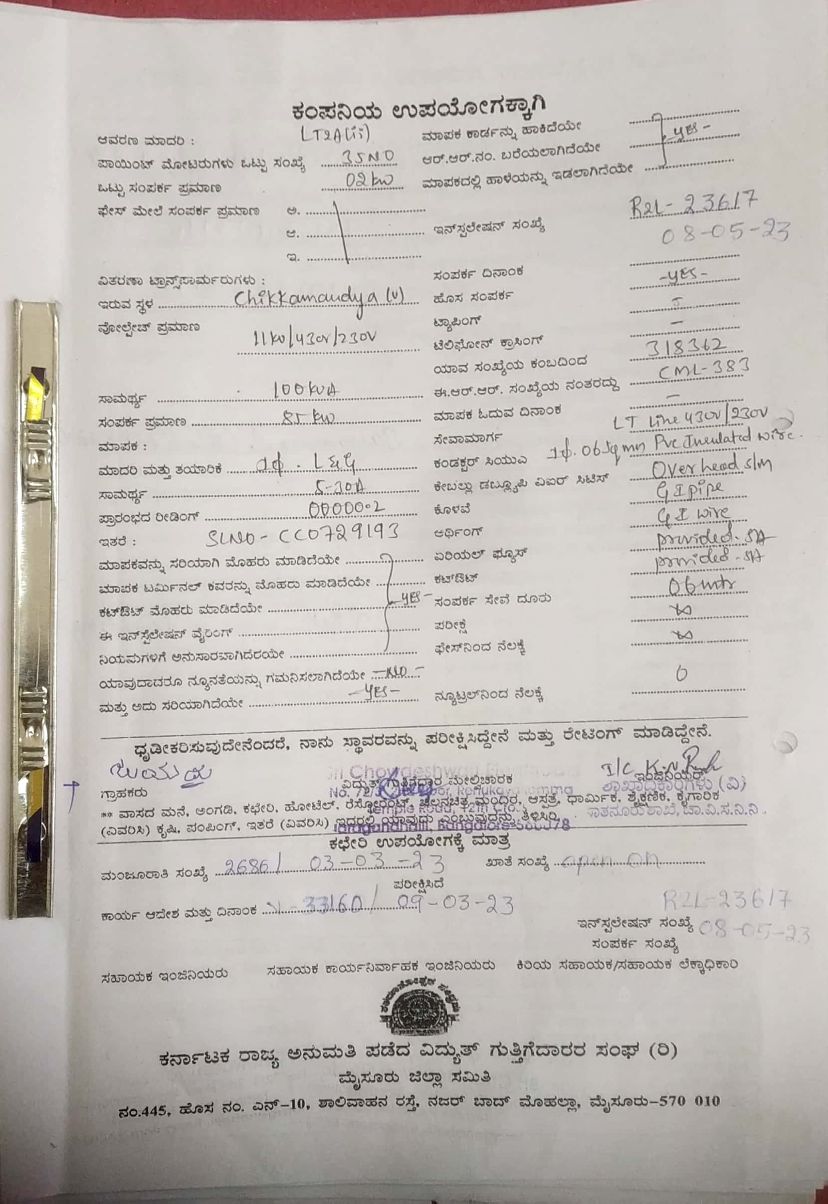 ಕಂಪನಿಯ ಉಪಯೋಗಕ್ಕಾಗಿ
ಆವರಣ ಮಾದರಿ : LT2A(ii) ಮಾಪಕ ಕಾರ್ಡನ್ನು ಹಾಕಿದೆಯೇ
ಪಾಯಿಂಟ್ ಮೋಟರುಗಳು ಒಟ್ಟು ಸಂಖ್ಯೆ 3SNO ಆರ್.ಆರ್.ನಂ. ಬರೆಯಲಾಗಿದೆಯೇ -YES-
ಒಟ್ಟು ಸಂಪರ್ಕ ಪ್ರಮಾಣ 02 kw ಮಾಪಕದಲ್ಲಿ ಹಾಳೆಯನ್ನು ಇಡಲಾಗಿದೆಯೇ
ಫೇಸ್ ಮೇಲೆ ಸಂಪರ್ಕ ಪ್ರಮಾಣ ಅ.
ಆ. ಇನ್‌ಸ್ಪಲೇಷನ್ ಸಂಖ್ಯೆ R2L-23617
08-05-23
ಇ.
ವಿತರಣಾ ಟ್ರಾನ್ಸ್‌ಫಾರ್ಮರುಗಳು : ಸಂಪರ್ಕ ದಿನಾಂಕ
ಇರುವ ಸ್ಥಳ Chikkamandya (v) ಹೊಸ ಸಂಪರ್ಕ -YES-
ವೋಲ್ಟೇಜ್ ಪ್ರಮಾಣ 11kv/430v/230v ಟ್ಯಾಪಿಂಗ್
ಟೆಲಿಫೋನ್ ಕ್ರಾಸಿಂಗ್ —
ಯಾವ ಸಂಖ್ಯೆಯ ಕಂಬದಿಂದ 318362
ಸಾಮರ್ಥ್ಯ 100kvA ಈ.ಆರ್.ಆರ್. ಸಂಖ್ಯೆಯ ನಂತರದ್ದು CML-383
ಸಂಪರ್ಕ ಪ್ರಮಾಣ 85 kw ಮಾಪಕ ಓದುವ ದಿನಾಂಕ —
ಮಾಪಕ : ಸೇವಾಮಾರ್ಗ LT Line 430v/230v
ಮಾದರಿ ಮತ್ತು ತಯಾರಿಕೆ 1ф. L&G ಕಂಡಕ್ಟರ್ ಸಿಯುಎ 1ф. 06 Sqmm Pvc Insulated wire.
ಸಾಮರ್ಥ್ಯ 5-30A ಕೇಬಲ್ಲು ಡಬ್ಲ್ಯೂಪಿ ವಿಎರ್ ಸಿಟಿಸ್ Over head
ಪ್ರಾರಂಭದ ರೀಡಿಂಗ್ 000000.2 ಕೊಳವೆ GI pipe
ಇತರೆ : SLNO- CC0729193 ಅರ್ಥಿಂಗ್ GI wire
ಮಾಪಕವನ್ನು ಸರಿಯಾಗಿ ಮೊಹರು ಮಾಡಿದೆಯೇ ಏರಿಯಲ್ ಫ್ಯೂಸ್ provided.
ಮಾಪಕ ಟರ್ಮಿನಲ್ ಕವರನ್ನು ಮೊಹರು ಮಾಡಿದೆಯೇ ಕಟ್‌ಔಟ್ provided.
ಕಟ್‌ಔಟ್ ಮೊಹರು ಮಾಡಿದೆಯೇ -YES- ಸಂಪರ್ಕ ಸೇವೆ ದೂರು 06 mtr
ಈ ಇನ್‌ಸ್ಟೆಲೇಷನ್ ವೈರಿಂಗ್ ಪರೀಕ್ಷೆ
ನಿಯಮಗಳಿಗೆ ಅನುಸಾರವಾಗಿದರೆಯೇ ಫೇಸ್‌ನಿಂದ ನೆಲಕ್ಕೆ
ಯಾವುದಾದರೂ ನ್ಯೂನತೆಯನ್ನು ಗಮನಿಸಲಾಗಿದೆಯೇ -NO-
ಮತ್ತು ಅದು ಸರಿಯಾಗಿದೆಯೇ -YES- ನ್ಯೂಟ್ರಲ್‌ನಿಂದ ನೆಲಕ್ಕೆ 0
ಧೃಡೀಕರಿಸುವುದೇನೆಂದರೆ, ನಾನು ಸ್ಥಾವರವನ್ನು ಪರೀಕ್ಷಿಸಿದ್ದೇನೆ ಮತ್ತು ರೇಟಿಂಗ್ ಮಾಡಿದ್ದೇನೆ.
ಗ್ರಾಹಕರು ವಿದ್ಯುತ್ ಗುತ್ತಿಗೆದಾರ ಮೇಲ್ವಿಚಾರಕ ಇಂಜಿನಿಯರ್
** ವಾಸದ ಮನೆ, ಅಂಗಡಿ, ಕಛೇರಿ, ಹೋಟೆಲ್, ರೆಸ್ಟೋರೆಂಟ್, ಚಲನಚಿತ್ರ ಮಂದಿರ, ಆಸ್ಪತ್ರೆ, ಧಾರ್ಮಿಕ, ಶೈಕ್ಷಣಿಕ, ಕೈಗಾರಿಕ
(ವಿವರಿಸಿ) ಕೃಷಿ, ಪಂಪಿಂಗ್, ಇತರೆ (ವಿವರಿಸಿ) ಇದರಲ್ಲಿ ಯಾವುದು ಎಂಬುವುದನ್ನು ತಿಳಿಸಿರಿ.
ಕಛೇರಿ ಉಪಯೋಗಕ್ಕೆ ಮಾತ್ರ
ಮಂಜೂರಾತಿ ಸಂಖ್ಯೆ 2686/ 03-03-23 ಖಾತೆ ಸಂಖ್ಯೆ open on
ಪರೀಕ್ಷಿಸಿದೆ
ಕಾರ್ಯ ಆದೇಶ ಮತ್ತು ದಿನಾಂಕ 33160/ 09-03-23
R2L-23617
ಇನ್‌ಸ್ಪಲೇಷನ್ ಸಂಖ್ಯೆ 08-05-23
ಸಂಪರ್ಕ ಸಂಖ್ಯೆ
ಸಹಾಯಕ ಇಂಜಿನಿಯರು ಸಹಾಯಕ ಕಾರ್ಯನಿರ್ವಾಹಕ ಇಂಜಿನಿಯರು ಕಿರಿಯ ಸಹಾಯಕ/ಸಹಾಯಕ ಲೆಕ್ಕಾಧಿಕಾರಿ
ಕರ್ನಾಟಕ ರಾಜ್ಯ ಅನುಮತಿ ಪಡೆದ ವಿದ್ಯುತ್ ಗುತ್ತಿಗೆದಾರರ ಸಂಘ (ರಿ)
ಮೈಸೂರು ಜಿಲ್ಲಾ ಸಮಿತಿ
ನಂ.445, ಹೊಸ ನಂ. ಎನ್-10, ಶಾಲಿವಾಹನ ರಸ್ತೆ, ನಜರ್ ಬಾದ್ ಮೊಹಲ್ಲಾ, ಮೈಸೂರು-570 010